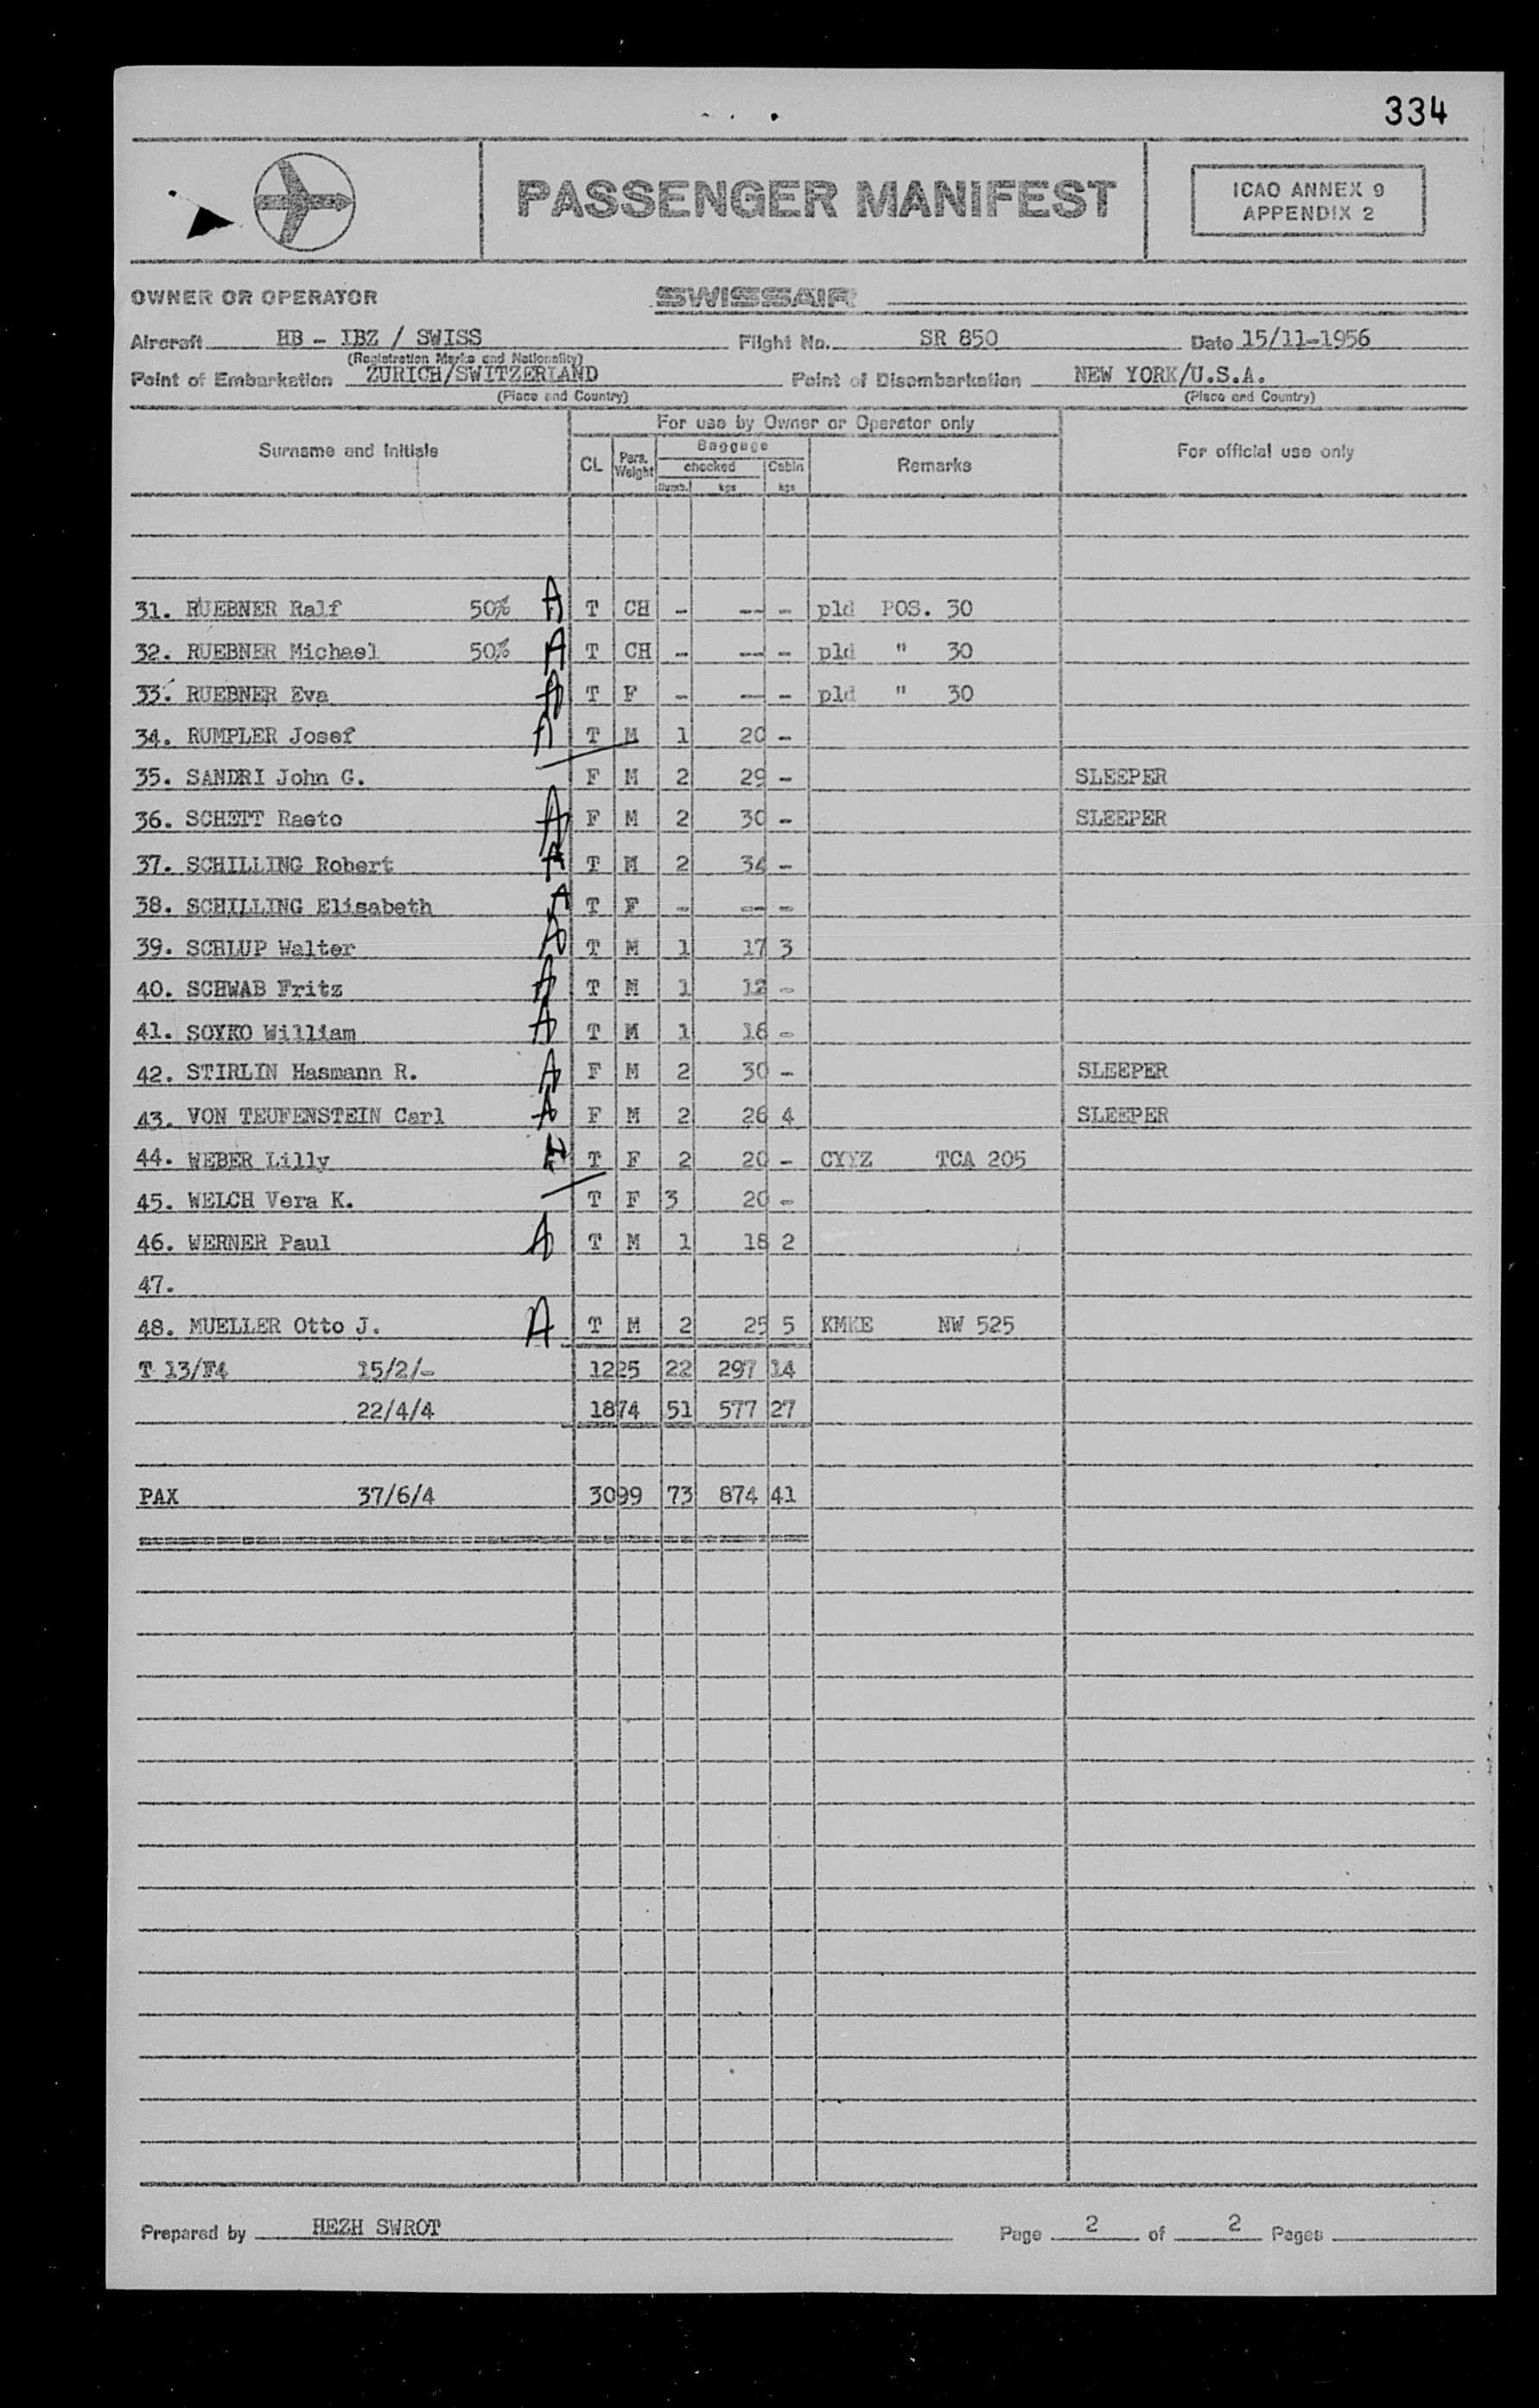 334
PASSENGER MANIFEST
ICAO ANNEX 9
APPENDIX 2
OWNER OR OPERATOR SWISSAIR
Aircraft HB - IBZ / SWISS Flight No. SR 850 Date 15/11-1956
(Registration Marks and Nationality)
Point of Embarkation ZURICH/SWITZERLAND Point of Disembarkation NEW YORK/U.S.A.
(Place and Country) (Place and Country)
For use by Owner or Operator only
Surname and Initials CL Pers. Weight Baggage checked Numb. kgs Cabin kgs Remarks For official use only
31. RUEBNER Ralf 50% A T CH - -- - pld POS. 30
32. RUEBNER Michael 50% A T CH - -- - pld " 30
33. RUEBNER Eva A T F - -- - pld " 30
34. RUMPLER Josef A T M 1 20 -
35. SANDRI John G. F M 2 29 - SLEEPER
36. SCHETT Raeto A F M 2 30 - SLEEPER
37. SCHILLING Robert A T M 2 34 -
38. SCHILLING Elisabeth A T F - -- -
39. SCHLUP Walter A T M 1 17 3
40. SCHWAB Fritz A T M 1 12 -
41. SOYKO William A T M 1 16 -
42. STIRLIN Hasmann R. A F M 2 30 - SLEEPER
43. VON TEUFENSTEIN Carl A F M 2 26 4 SLEEPER
44. WEBER Lilly T F 2 20 - CYYZ TCA 205
45. WELCH Vera K. T F 3 20 -
46. WERNER Paul A T M 1 18 2
47.
48. MUELLER Otto J. A T M 2 25 5 KMKE NW 525
T 13/F4 15/2/- 1225 22 297 14
22/4/4 1874 51 577 27
PAX 37/6/4 3099 73 874 41
Prepared by HEZH SWROT Page 2 of 2 Pages